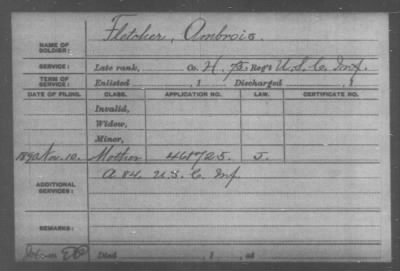 NAME OF SOLDIER: Fletcher, Ambrois.
SERVICE: Late rank, Co. H, 75 Reg't U.S.C. Inf.
TERM OF SERVICE: Enlisted , 1 Discharged , 1
DATE OF FILING. CLASS. APPLICATION NO. LAW. CERTIFICATE NO.
Invalid,
Widow,
Minor,
1890 Nov. 10. Mother 468725. J.
ADDITIONAL SERVICES: A 84. U.S.C. Inf
REMARKS:
Died , 1 , at